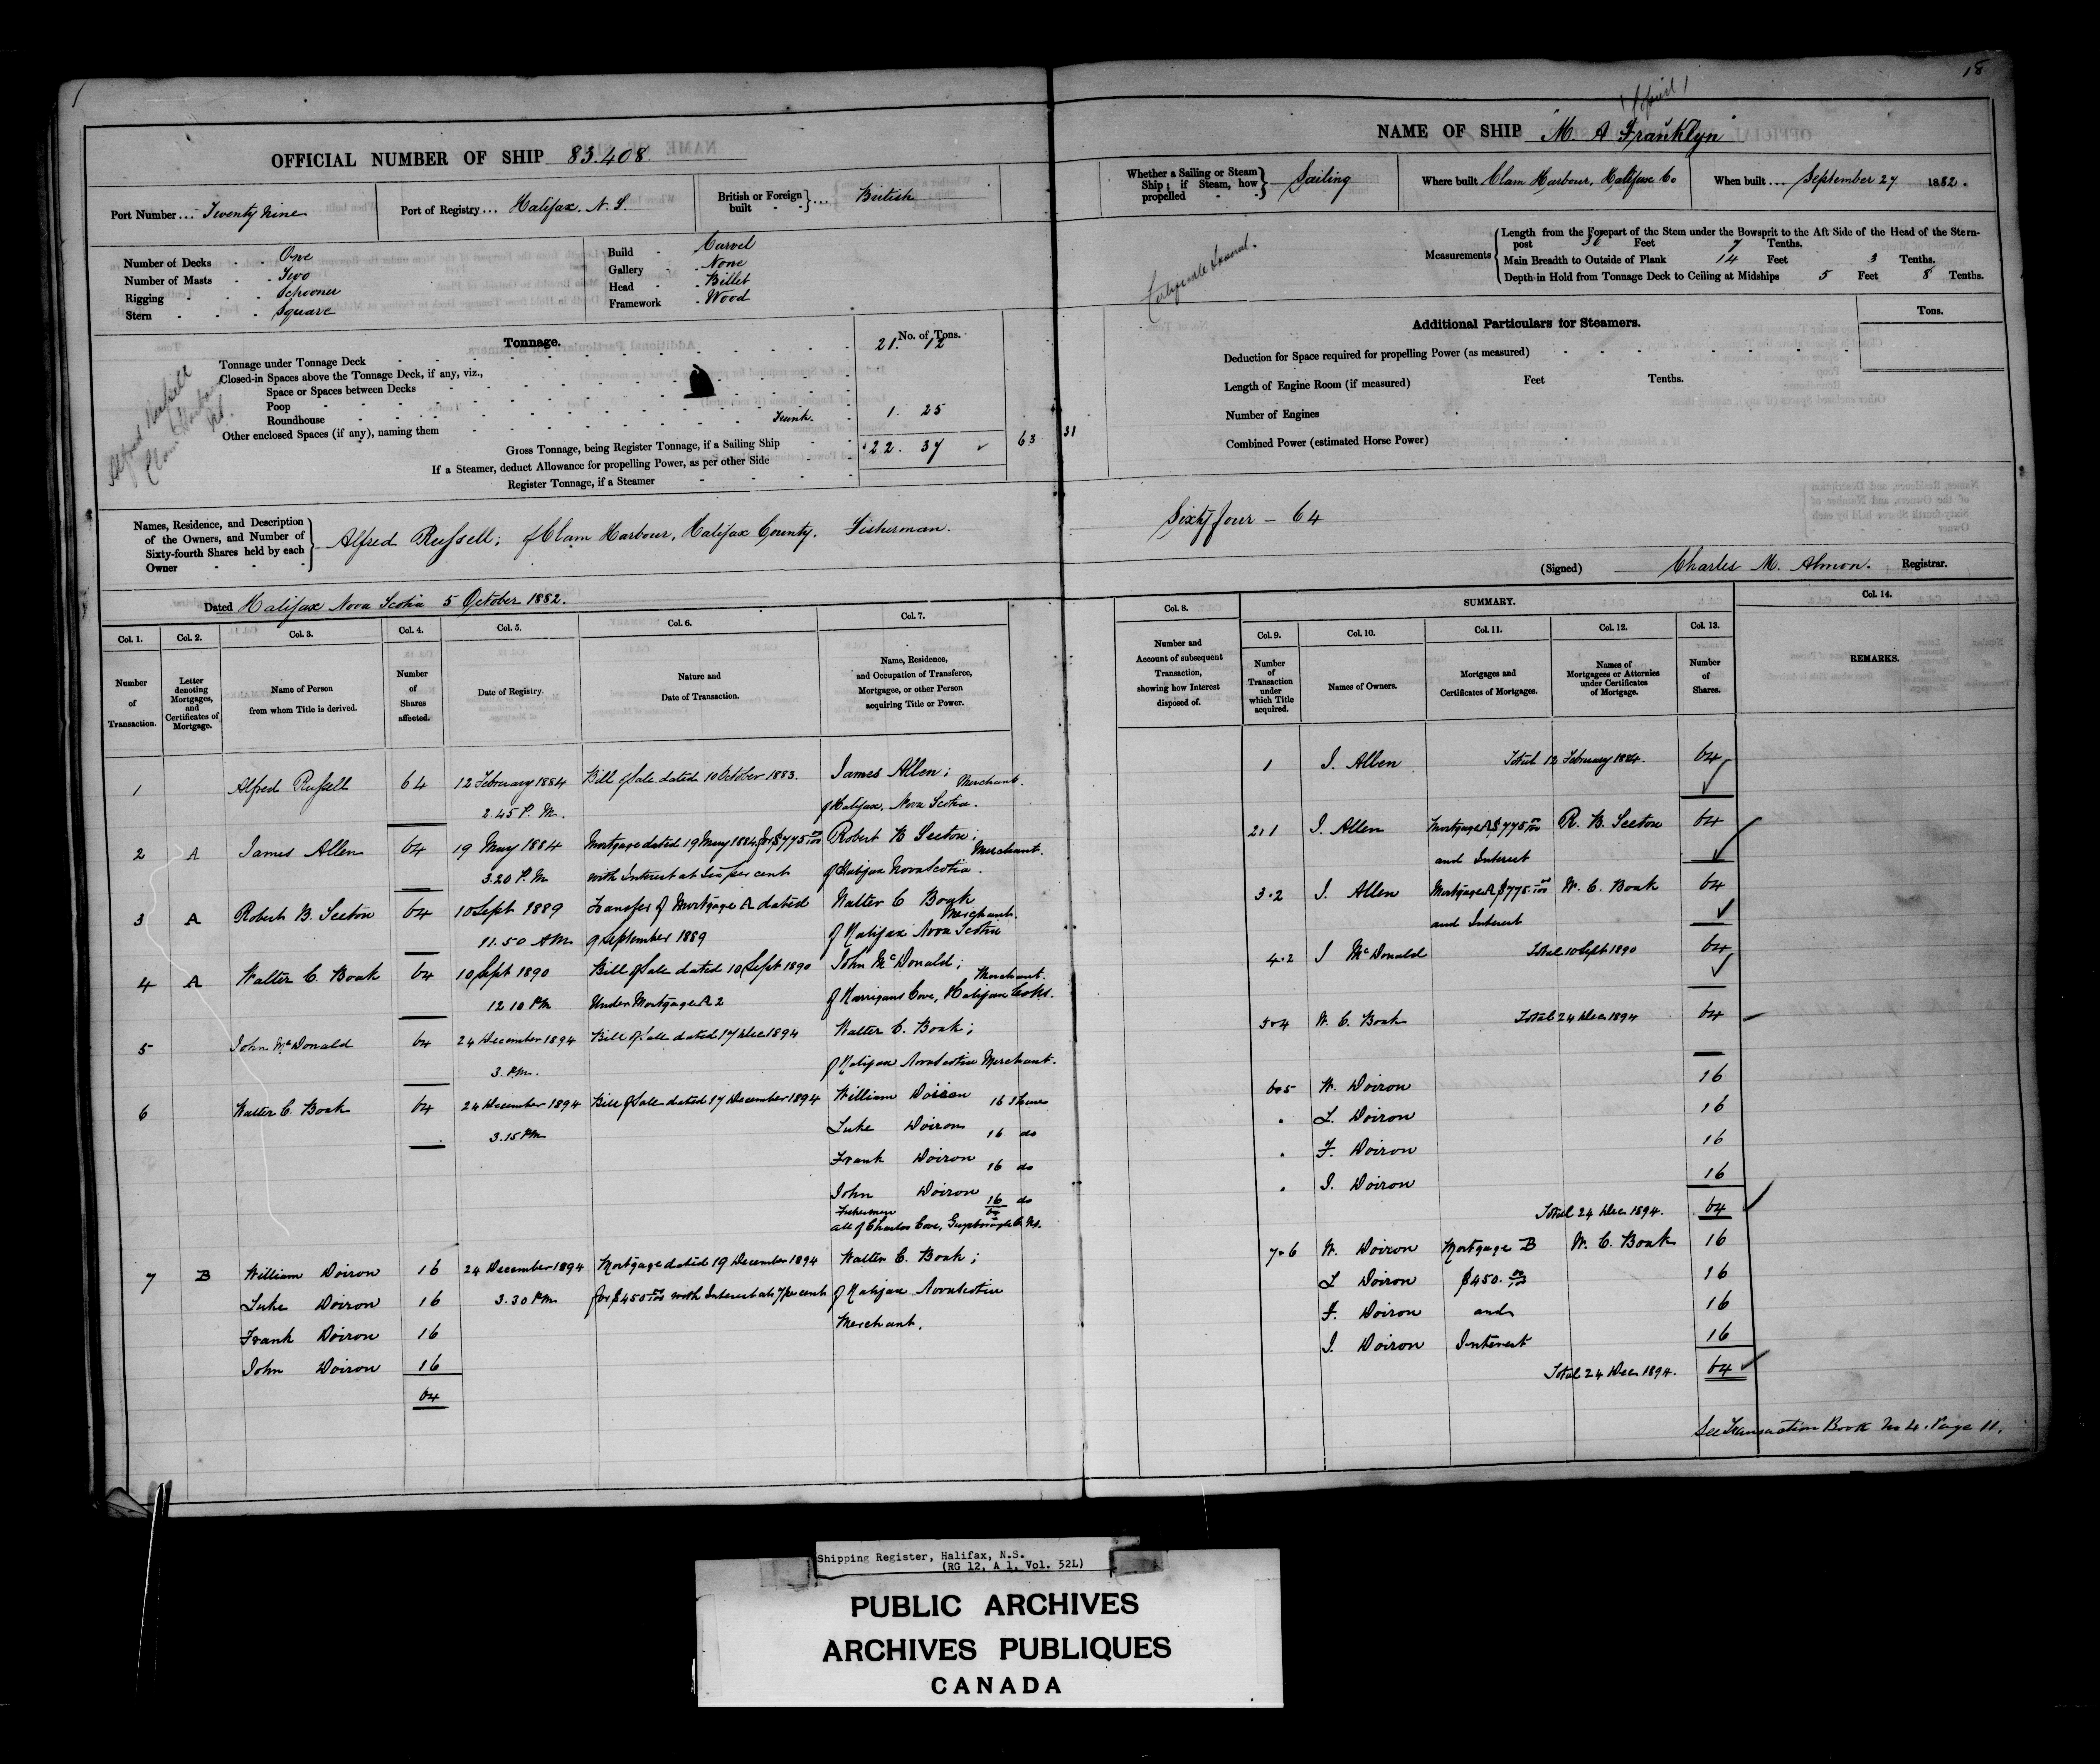 18
OFFICIAL NUMBER OF SHIP 83.408.
Port Number ... Twenty Nine
Port of Registry ... Halifax. N. S.
British or Foreign built ... British
Number of Decks One
Number of Masts Two
Rigging Schooner
Stern Square
Build Carvel
Gallery None
Head Billet
Framework Wood
Tonnage.
No. of Tons.
Tonnage under Tonnage Deck 21. 12
Closed-in Spaces above the Tonnage Deck, if any, viz.,
Space or Spaces between Decks
Poop
Roundhouse
Other enclosed Spaces (if any), naming them Trunk. 1. 25
Gross Tonnage, being Register Tonnage, if a Sailing Ship 22. 37 63 31
If a Steamer, deduct Allowance for propelling Power, as per other Side
Register Tonnage, if a Steamer
Alfred Russell
Clam Harbour
NS.
NAME OF SHIP "M. A. Franklyn"
Whether a Sailing or Steam Ship; if Steam, how propelled Sailing
Where built Clam Harbour, Halifax Co
When built ... September 27 1882.
Measurements
Length from the Forepart of the Stem under the Bowsprit to the Aft Side of the Head of the Stern-
post Feet 7 Tenths.
Main Breadth to Outside of Plank 14 Feet 3 Tenths.
Depth in Hold from Tonnage Deck to Ceiling at Midships 5 Feet 8 Tenths.
Additional Particulars for Steamers.
Tons.
Deduction for Space required for propelling Power (as measured)
Length of Engine Room (if measured) Feet Tenths.
Number of Engines
Combined Power (estimated Horse Power)
Names, Residence, and Description of the Owners, and Number of Sixty-fourth Shares held by each Owner
Alfred Russell; of Clam Harbour, Halifax County. Fisherman. Sixty four - 64
(Signed) Charles M. Almon. Registrar.
Dated Halifax Nova Scotia 5 October 1882.
Col. 1. Col. 2. Col. 3. Col. 4. Col. 5. Col. 6. Col. 7.
Number of Transaction.
Letter denoting Mortgages, and Certificates of Mortgage.
Name of Person from whom Title is derived.
Number of Shares affected.
Date of Registry.
Nature and Date of Transaction.
Name, Residence, and Occupation of Transferee, Mortgagee, or other Person acquiring Title or Power.
1 Alfred Russell 64 12 February 1884 Bill of Sale dated 10 October 1883. James Allen;
2.45 P. M. of Halifax, Nova Scotia. Merchant.
2 A James Allen 64 19 May 1884 Mortgage dated 19 May 1884 for $775 00/100 Robert B Seeton;
3.20 P. M with Interest at Six per cent of Halifax Nova Scotia. Merchant.
3 A Robert B. Seeton 64 10 Sept 1889 Transfer of Mortgage A dated Walter C Boak
11.50 AM 9 September 1889 of Halifax Nova Scotia Merchant.
4 A Walter C. Boak 64 10 Sept 1890 Bill of Sale dated 10 Sept 1890 John McDonald;
12 10 PM Under Mortgage A 2 of Harrigans Cove, Halifax Co NS. Merchant.
5 John McDonald 64 24 December 1894 Bill of Sale dated 17 Dec 1894 Walter C. Boak;
3. P.M. of Halifax Nova Scotia Merchant.
6 Walter C. Boak 64 24 December 1894 Bill of Sale dated 17 December 1894 William Doiron 16 Shares
3.15 PM Luke Doiron 16 do
Frank Doiron 16 do
John Doiron 16 do
Fishermen 64
all of Charlos Cove, Guysborough Co NS.
7 B William Doiron 16 24 December 1894 Mortgage dated 19 December 1894 Walter C. Boak;
Luke Doiron 16 3.30 PM for $450 00/100 with Interest at 7 per cent of Halifax Nova Scotia
Frank Doiron 16 Merchant.
John Doiron 16
64
Col. 8. SUMMARY. Col. 14.
Col. 9. Col. 10. Col. 11. Col. 12. Col. 13.
Number and Account of subsequent Transaction, showing how Interest disposed of.
Number of Transaction under which Title acquired.
Names of Owners.
Mortgages and Certificates of Mortgages.
Names of Mortgagees or Attornies under Certificates of Mortgage.
Number of Shares.
REMARKS.
1 J. Allen Total 12 February 1884. 64
2.1 J. Allen Mortgage A $775 00/100 R. B. Seeton 64
and Interest
3.2 J. Allen Mortgage A $775 00/100 W. C. Boak 64
and Interest
4.2 J McDonald Total 10 Sept 1890 64
5.4 W. C. Boak Total 24 Dec 1894 64
6.5 W. Doiron 16
" L. Doiron 16
" F. Doiron 16
" J. Doiron 16
Total 24 Dec 1894. 64
7.6 W. Doiron Mortgage B W. C. Boak 16
L Doiron $450. 00/100 16
F. Doiron and 16
J. Doiron Interest 16
Total 24 Dec 1894. 64
See Transaction Book No 4. Page 11.
Shipping Register, Halifax, N.S.
(RG 12, A 1, Vol. 52L)
PUBLIC ARCHIVES
ARCHIVES PUBLIQUES
CANADA